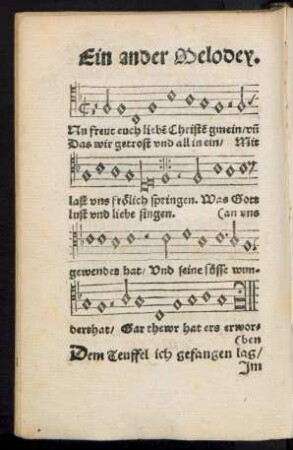 Ein ander Melodey.
NUn freut euch liebē Christē gmein/ vñ
Das wir getrost vnd all in ein/ Mit
last vns frölich springen. Was Gott
lust vnd liebe singen. (an vns
gewendet hat/ Vnd seine süsse wun-
derthat/ Gar thewr hat ers erwor-
(ben
Dem Teuffel ich gefangen lag/
Im